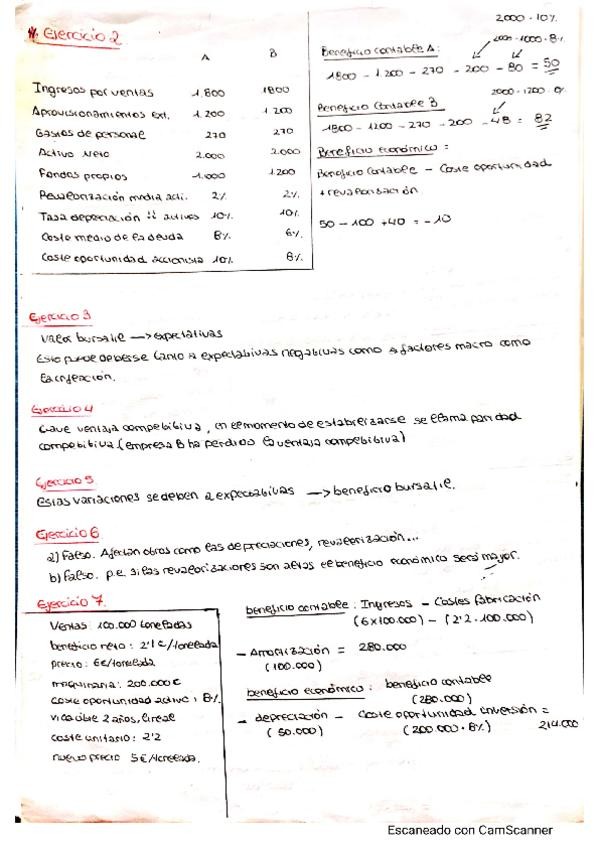 Ejercicio 2
A B
Ingresos por ventas 1.800 1800
Aprovisionamientos ext. 1.200 1200
Gastos de personal 270 270
Activo Neto 2.000 2.000
Fondos propios 1.000 1.200
Revalorización media acti. 2% 2%
Tasa depreciación activos 10% 10%
Coste medio de la deuda 8% 6%
Coste oportunidad accionista 10% 8%
2000 · 10%
Beneficio contable A:
2000-1000·8%
1800 - 1.200 - 270 - 200 - 80 = 50
2000-1200·
Beneficio Contable B
1800 - 1200 - 270 - 200 - 48 = 82
Beneficio económico =
Beneficio Contable - Coste oportunidad
+ revalorización
50 - 100 + 40 = -10
Ejercicio 3
Valor bursatil → expectativas
Esto puede deberse tanto a expectativas negativas como a factores macro como
la inflación.
Ejercicio 4
Clave ventaja competitiva, en el momento de estabilizarse se llama paridad
competitiva (empresa B ha perdido la ventaja competitiva)
Ejercicio 5
Estas variaciones se deben a expectativas → beneficio bursatil.
Ejercicio 6
a) Falso. Afectan otros como las depreciaciones, revalorización...
b) Falso. p.e si las revalorizaciones son altas el beneficio económico será mayor.
Ejercicio 7.
Ventas: 100.000 toneladas
beneficio neto: 2'1 €/tonelada
precio: 6€/tonelada
maquinaria: 200.000€
coste oportunidad activo: 8%
vida útil 2 años, lineal
coste unitario: 2'2
nuevo precio 5€/tonelada.
beneficio contable: Ingresos - Costes fabricación
(6x100.000) - (2'2·100.000)
- Amortización = 280.000
(100.000)
beneficio económico: beneficio contable
(280.000)
- depreciación - Coste oportunidad inversión =
(50.000) (200.000·8%) 214.000
Escaneado con CamScanner